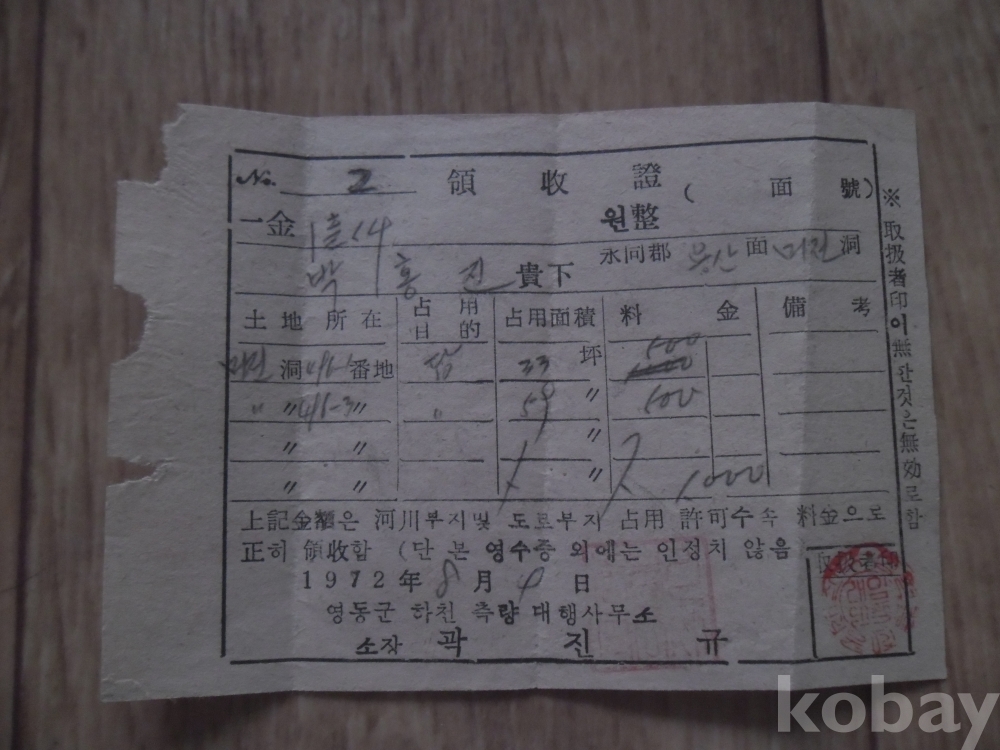 No. 2 領收證 ( 面 號)
一金 원整
永同郡 面 洞
박 홍 진 貴下
土地所在 占用目的 占用面積 料金 備考
洞 番地 답 33 坪 500
〃 〃 〃 59 〃 500
〃 〃 〃
〃 〃 〃 1000
上記金額은 河川부지및 도로부지 占用 許可수속 料金으로
正히 領收함 (단 본 영수증 외에는 인정치 않음
1972年 8月 9日
영동군 하천 측량 대행사무소
소장 곽 진 규
※取扱者印이無한것은無効로함